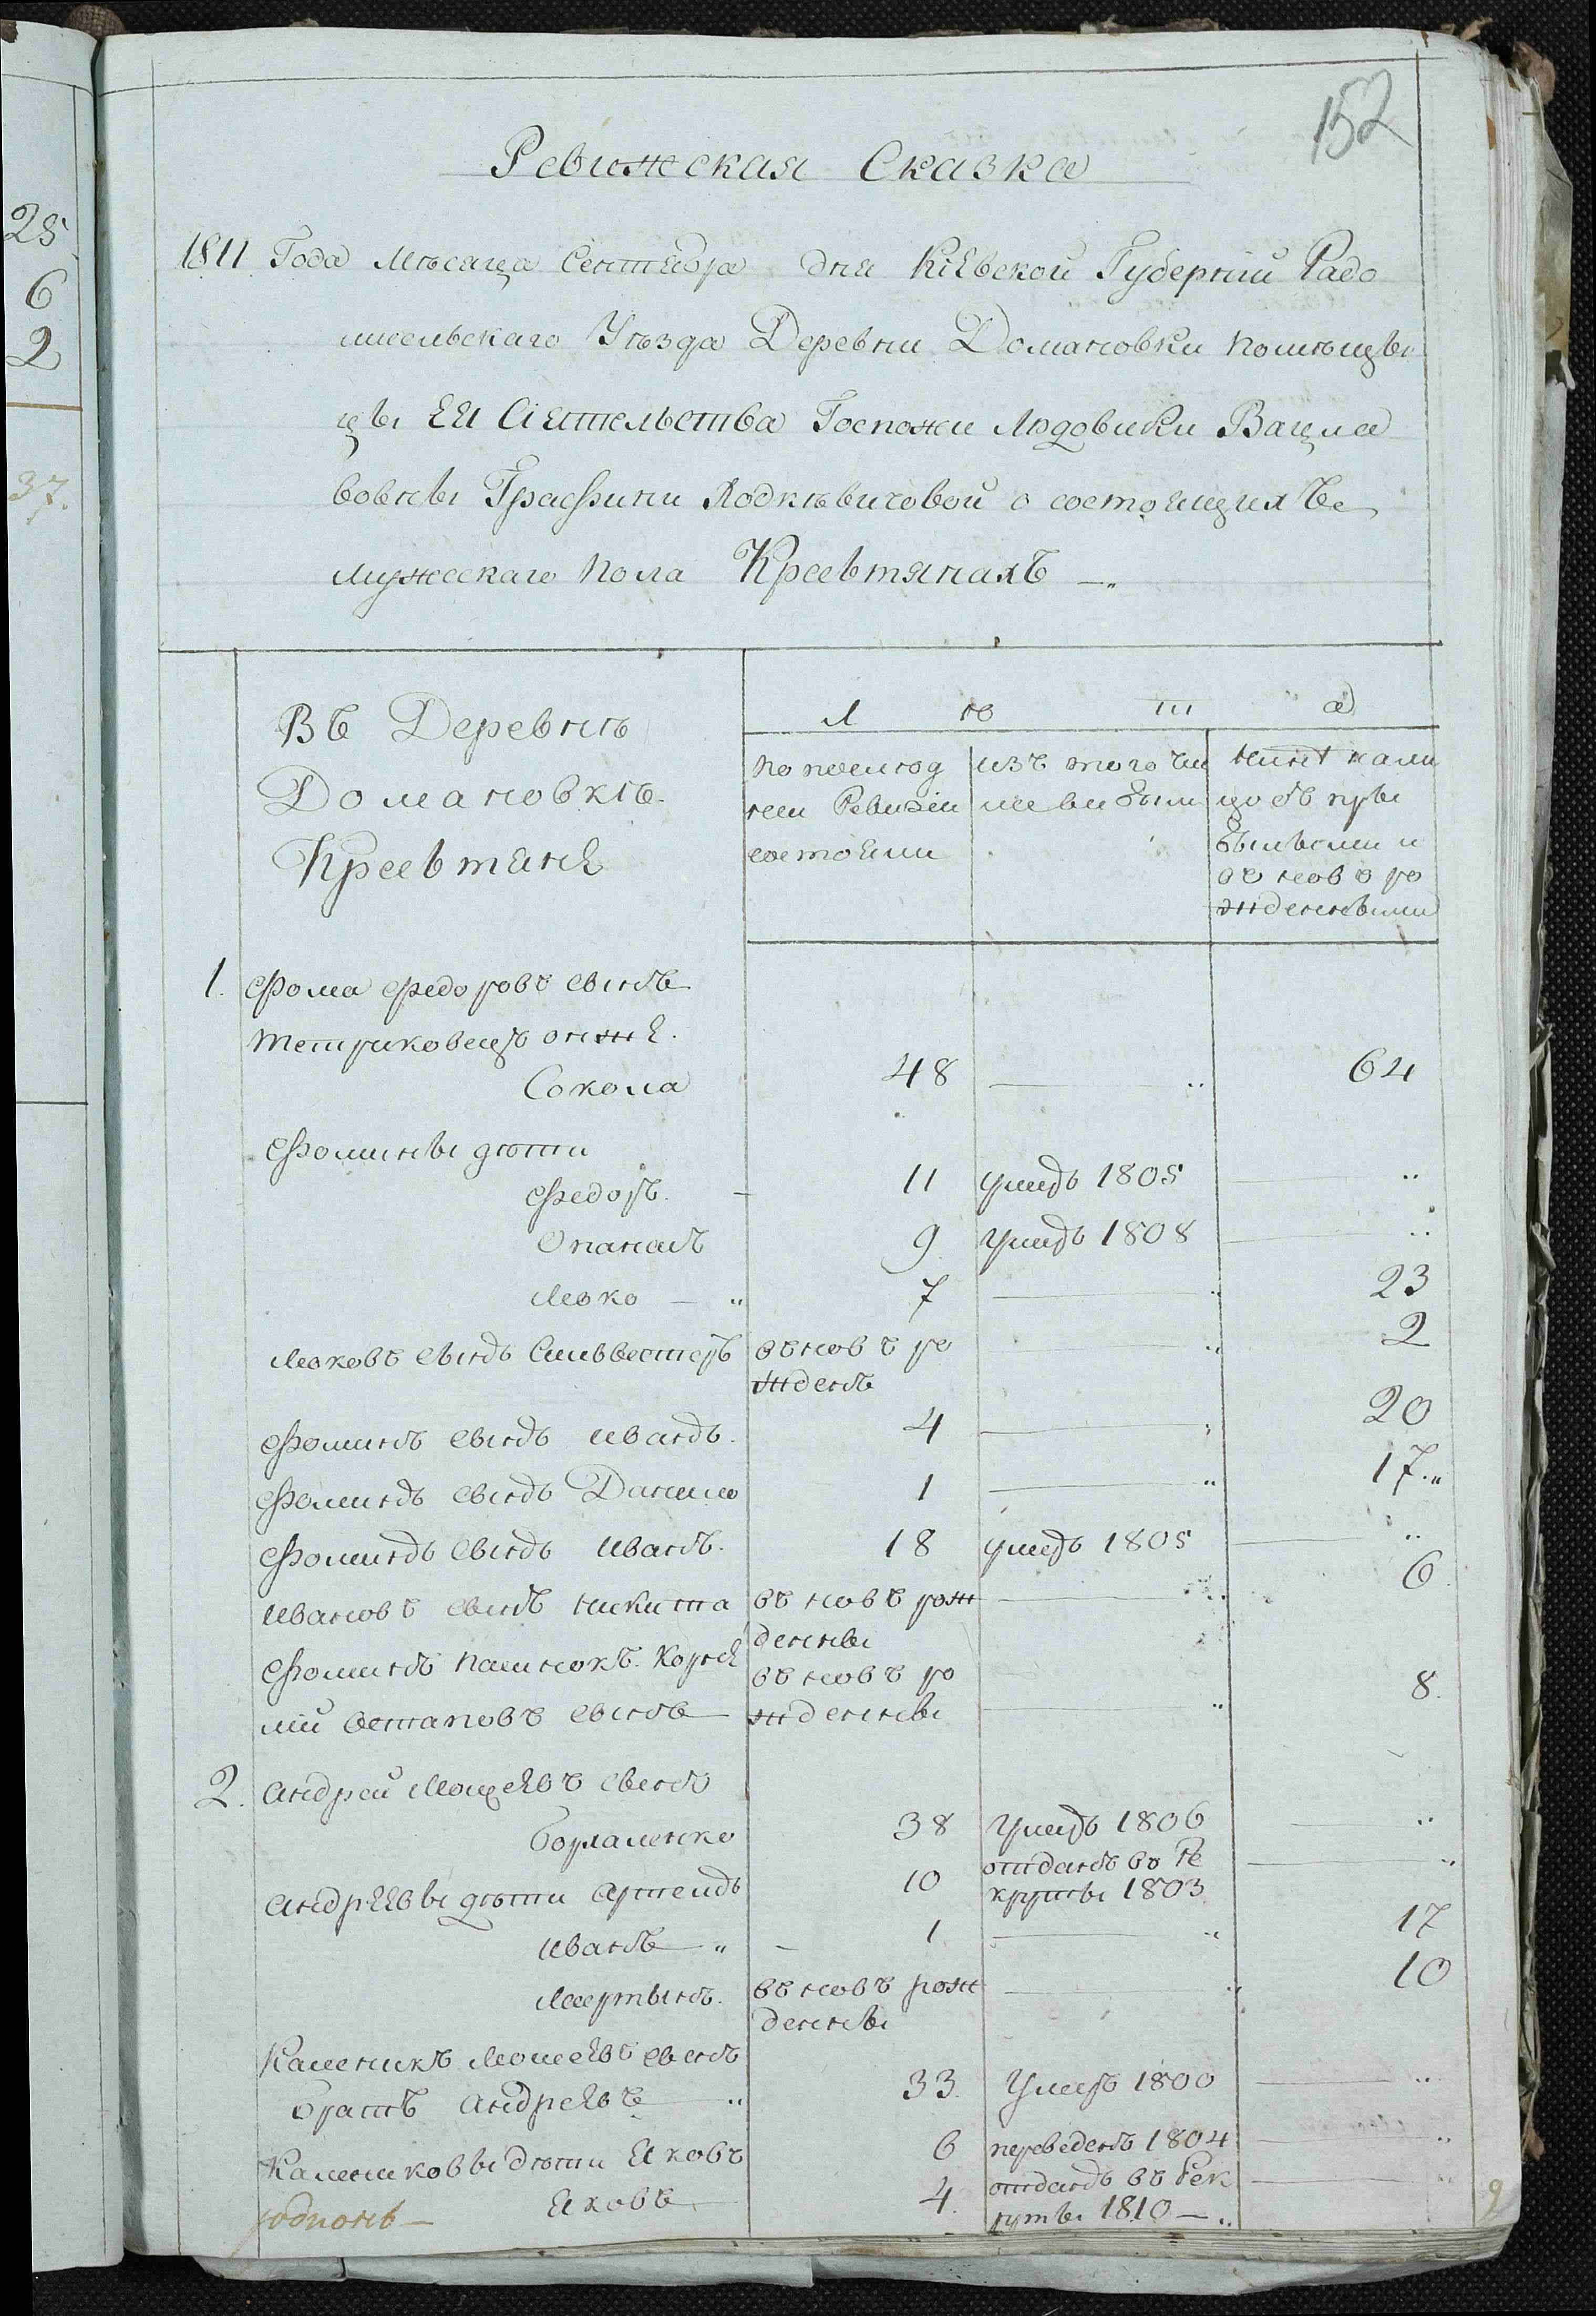 152
25
6
2
37.
Ревижская Сказка
1811 Года Мѣсяца Сентября дня Кіевской Губерніи Радо
мысльскаго Уѣзда Деревни Домановки помѣщи
цы Ея Сіятельства Госпожи Людовики Вацла
вовны Графини Ходкѣвичовой о состоящихъ
мужескаго пола Крестянахъ
Въ Деревнѣ
Домановкѣ.
Крестяне
Л ѣ т а
по послед
ней Ревизіи
состояли
изъ того чи
сла выбыли
нынѣ на ли
цо съ при
былыми и
въ новъ ро
жденными
1. Фома Федоровъ сынъ
Тетриковецъ онже.
Сокола 48 64
Фомины дѣти
Федоръ. 11 умеръ 1805
Опанасъ 9. умеръ 1808
Левко 7 23
Левковъ сынъ Сильвестеръ въ новъ ро 2
жденъ
Фоминъ сынъ Иванъ. 4 20
Фоминъ сынъ Данило 1 17
Фоминъ сынъ Иванъ. 18 умеръ 1805
Ивановъ сынъ Никита въ новъ рож 6
денны
Фоминъ пасинокъ Корне въ новъ ро
лій Остаповъ сынъ жденны 8.
2. Андрей Мосеевъ сынъ
Борлаенко 38 умеръ 1806
Андреевы дѣти Артемъ 10 отданъ въ Ре
круты 1803
Иванъ 1 17
Мартынъ. въ новъ рож 10
денны
Каленикъ Мосеевъ сынъ
братъ Андреевъ 33. Умеръ 1800
Калениковы дѣти Яковъ 6 переведенъ 1804
Яковъ 4. отданъ въ Рек
руты 1810